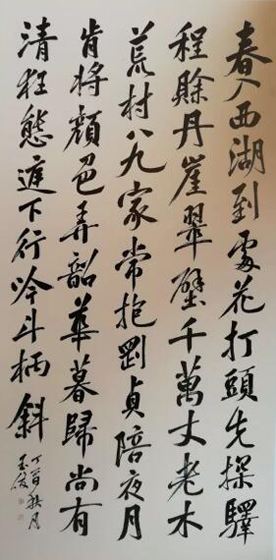 春入西湖到處花打頭先探驛
程賒丹崖翠壁千萬丈老木
荒村八九家常抱剛貞陪夜月
肯將顏色弄韶華暮歸尚有
清狂態庭下行吟斗柄斜
丁酉秋月